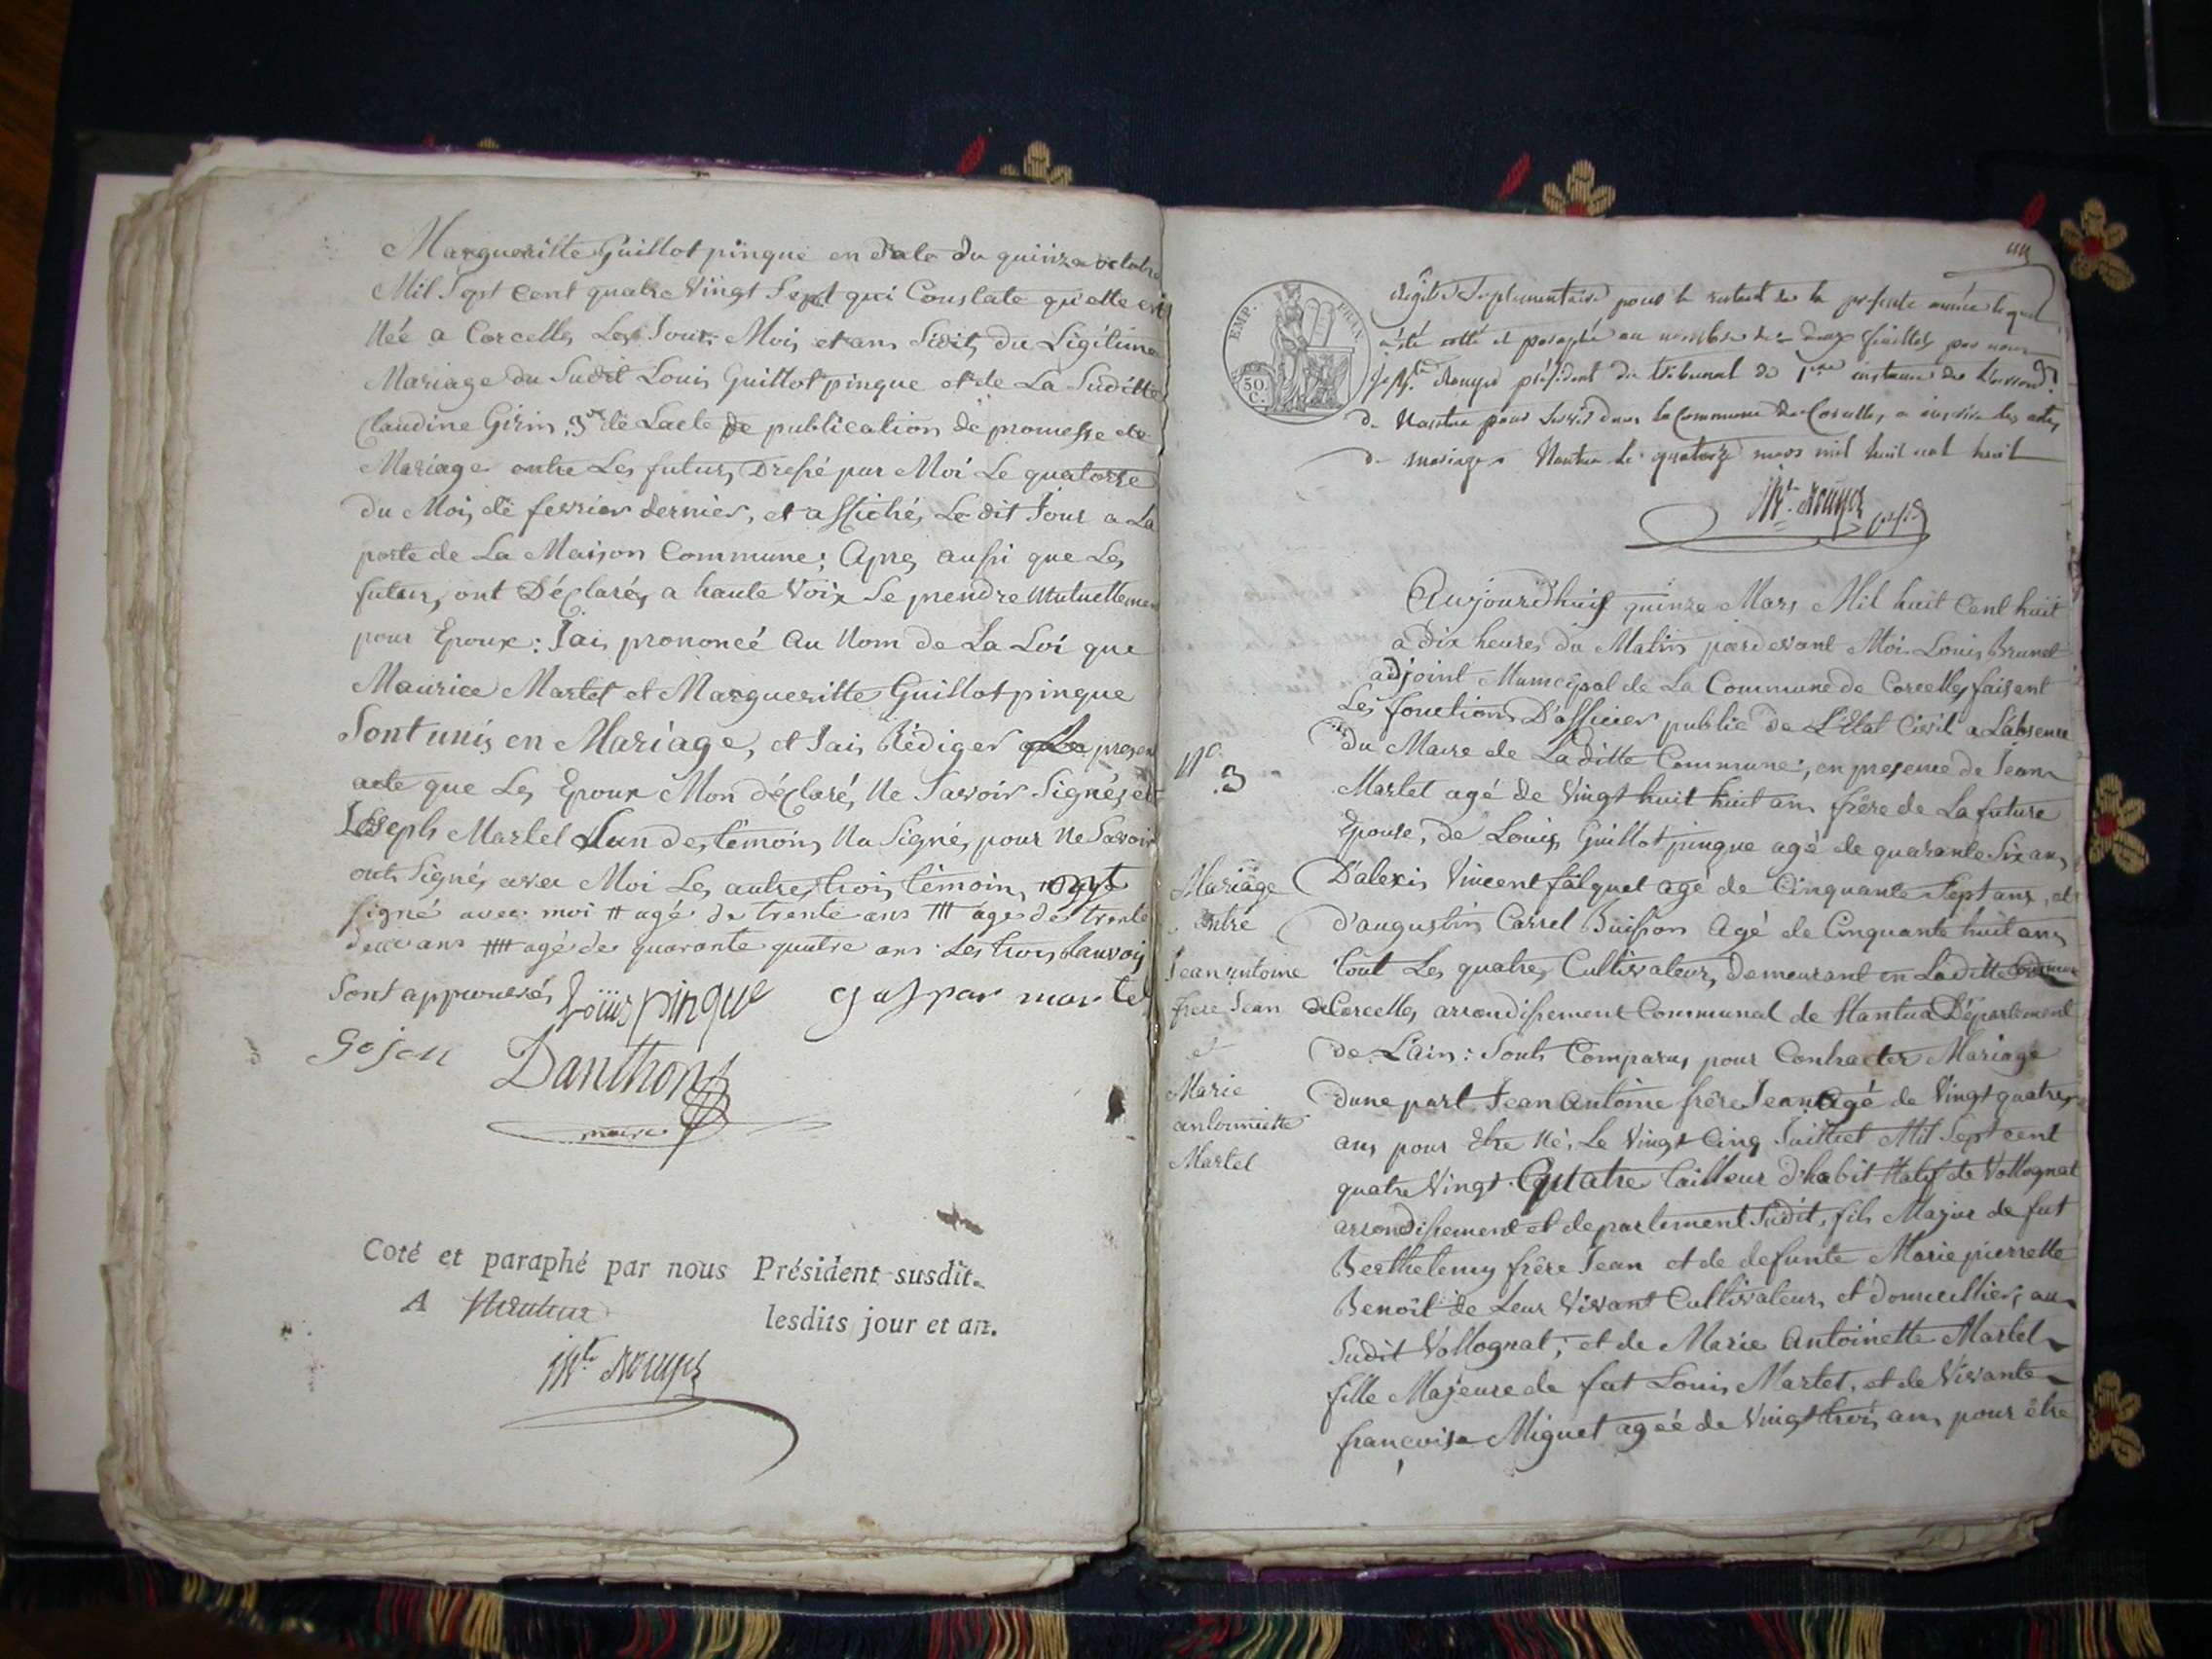 Margueritte Guillot pinque en date du quinze octobre
Mil Sept Cent quatre Vingt Sept qui Constate qu'elle est
Née a Corcelles Les Jour, Mois et an Sudits du Légitime
Mariage du Sudit Louis Guillot pinque et de La Suditte
Claudine Girin, 3º de Lacte de publication de promesse de
Mariage entre Les futurs, Dressé par Moi Le quatorze
du Mois de fevrier dernier, et affiché Le dit Jour a La
porte de La Maison Commune; Apres aussi que Les
futurs, ont Déclarés a haute Voix Se prendre Mutuellement
pour Epoux: Jais prononcé au Nom de La Loi que
Maurice Martel et Margueritte Guillot pinque
Sont unis en Mariage, et Jais Rédiger Le present
acte que Les Epoux Mon déclaré, Ne Savoir Signés et
Joseph Martel Lun des témoins Na Signé, pour Ne Savoir
ont Signés avec Moi Les autres trois témoins
signé avec moi # agé de trente ans ## agé de trente
deux ans ### agé de quarante quatre ans Les trois Ranvois
Sont approuvés Loüis pinque gaspar martel
Gojon Danthon
maire
Coté et paraphé par nous Président susdit.
A Nantua lesdits jour et an.
EMP. FRAN.
50. C.
Régitre Suplementaire pour le restant de la presente année lequel
a été cotté et paraphé au nombre de deux feuilles par nous
président du tribunal de 1ere instance de l'arrond.
de Nantua pour servir dans la Commune de Corcelles, a inscrire les actes
de mariage. Nantua le quatorze mars mil huit cent huit
Aujourdhuis quinze Mars Mil huit Cent huit
a dix heures du Matin pardevant Moi Louis Brunet
adjoint Municipal de La Commune de Corcelles faisant
Les fonctions D'officier public de L'Etat Civil a L'absence
du Maire de Laditte Commune; en presence de Jean
Nº 3
Martel agé de Vingt huit huit ans frère de La future
Epouse, de Louis Guillot pinque agé de quarante Six ans
Mariage entre Jean antoine frere Jean et Marie antoiniette Martel
D'alexis Vincent falquet agé de Cinquante Sept ans, et
d'augustin Carrel Buisson Agé de Cinquante huit ans
tout Les quatre, Cultivateurs, Demeurant en Laditte Commune
de Corcelles, arrondissement Communal de Nantua Département
de L'ain: Sont Comparus pour Contracter Mariage
dune part Jean Antoine frère Jean Agé de Vingt quatre
ans pour Etre Né, Le Vingt Cinq Juillet Mil Sept cent
quatre Vingt Quatre tailleur d'habit Natif de Vollognat
arrondissement et departement Sudit, fils Majeur de fut
Berthelemy frère Jean et de defunte Marie pierrette
Benoît de Leur Vivant Cultivateurs et domicilliés, au
Sudit Vollognat; et de Marie Antoinette Martel
fille Majeure de fut Louis Martel, et de Vivante
françoise Miguet agéé de Vingt trois ans pour être